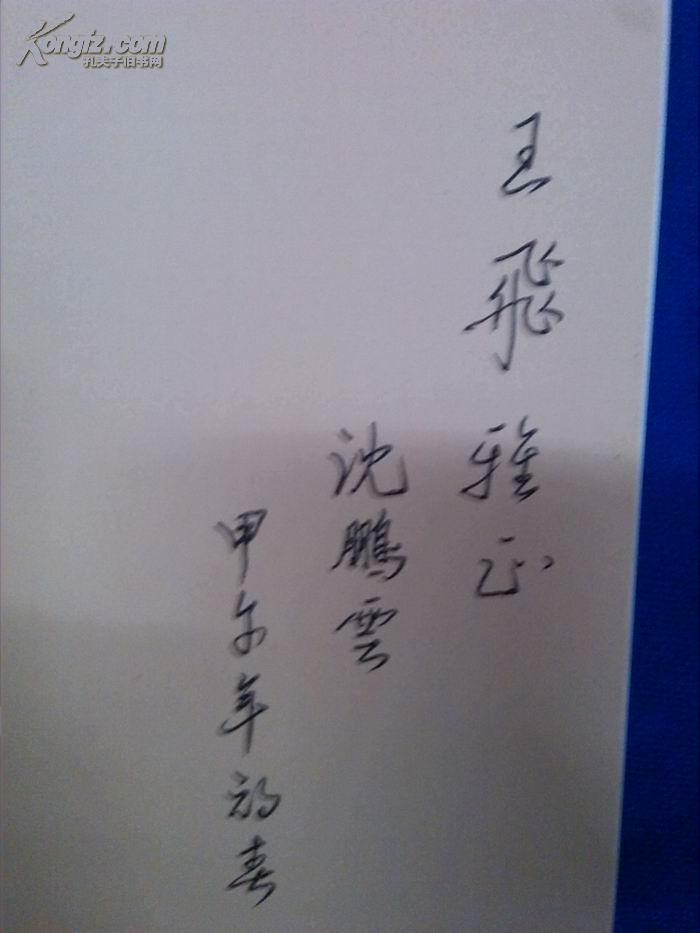 王飛雅正
沈鵬雲
甲午年初春
Kongfz.com
孔夫子旧书网